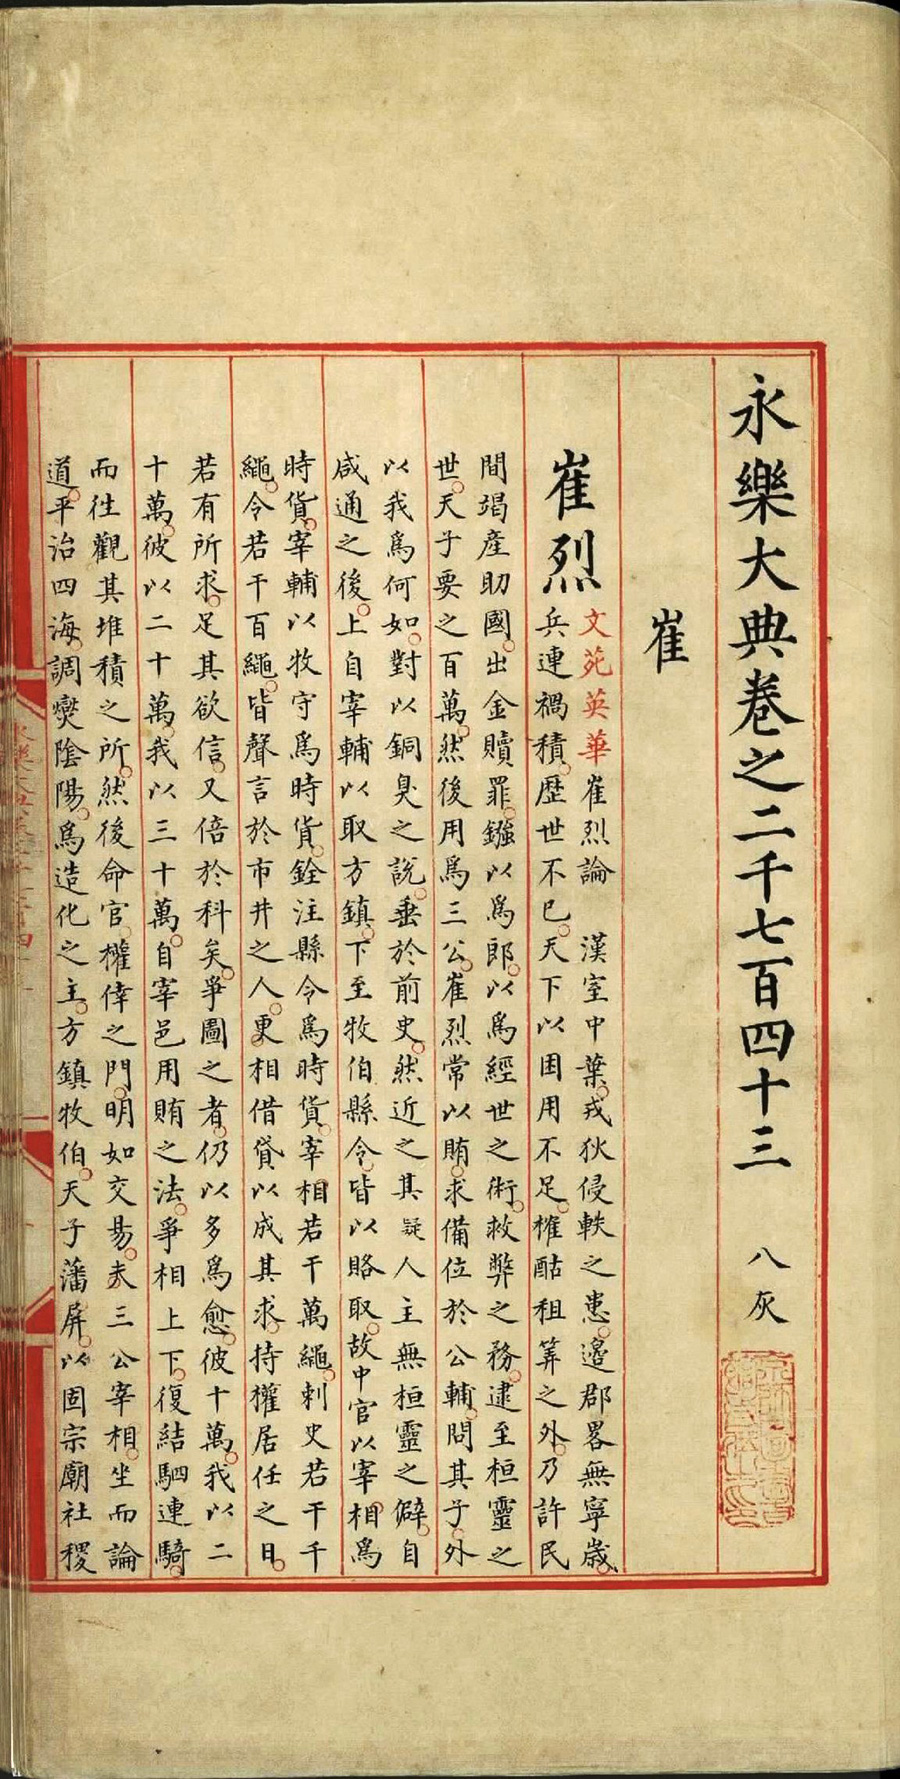 永樂大典卷之二千七百四十三 八灰
崔
崔烈
文苑英華崔烈論 漢室中葉戎狄侵軼之患邉郡畧無寧歳
兵連禍積歷世不已天下以困用不足榷酤租筭之外乃許民
間竭產助國出金贖罪鏹以爲郎以爲經世之術救弊之務逮至桓靈之
世天子要之百萬然後用爲三公崔烈常以賄求備位於公輔問其子外
以我爲何如對以銅臭之說垂於前史然近之其疑人主無桓靈之僻自
咸通之後上自宰輔以取方鎮下至牧伯縣令皆以賂取故中官以宰相爲
時貨宰輔以牧守爲時貨銓注縣令爲時貨宰相若干萬繩刺史若干千
繩令若干百繩皆聲言於市井之人更相借貸以成其求持權居任之日
若有所求足其欲信又倍於科矣爭圖之者仍以多爲愈彼十萬我以二
十萬彼以二十萬我以三十萬自宰邑用賄之法爭相上下復結駟連騎
而往觀其堆積之所然後命官權倖之門明如交易夫三公宰相坐而論
道平治四海調爕陰陽爲造化之主方鎮牧伯天子藩屏以固宗廟社稷